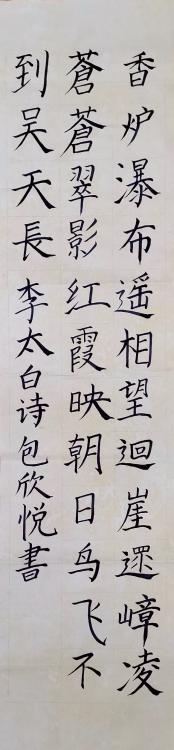 香炉瀑布遥相望迴崖遝嶂凌
蒼蒼翠影红霞映朝日鸟飞不
到吴天長 李太白诗包欣悦書